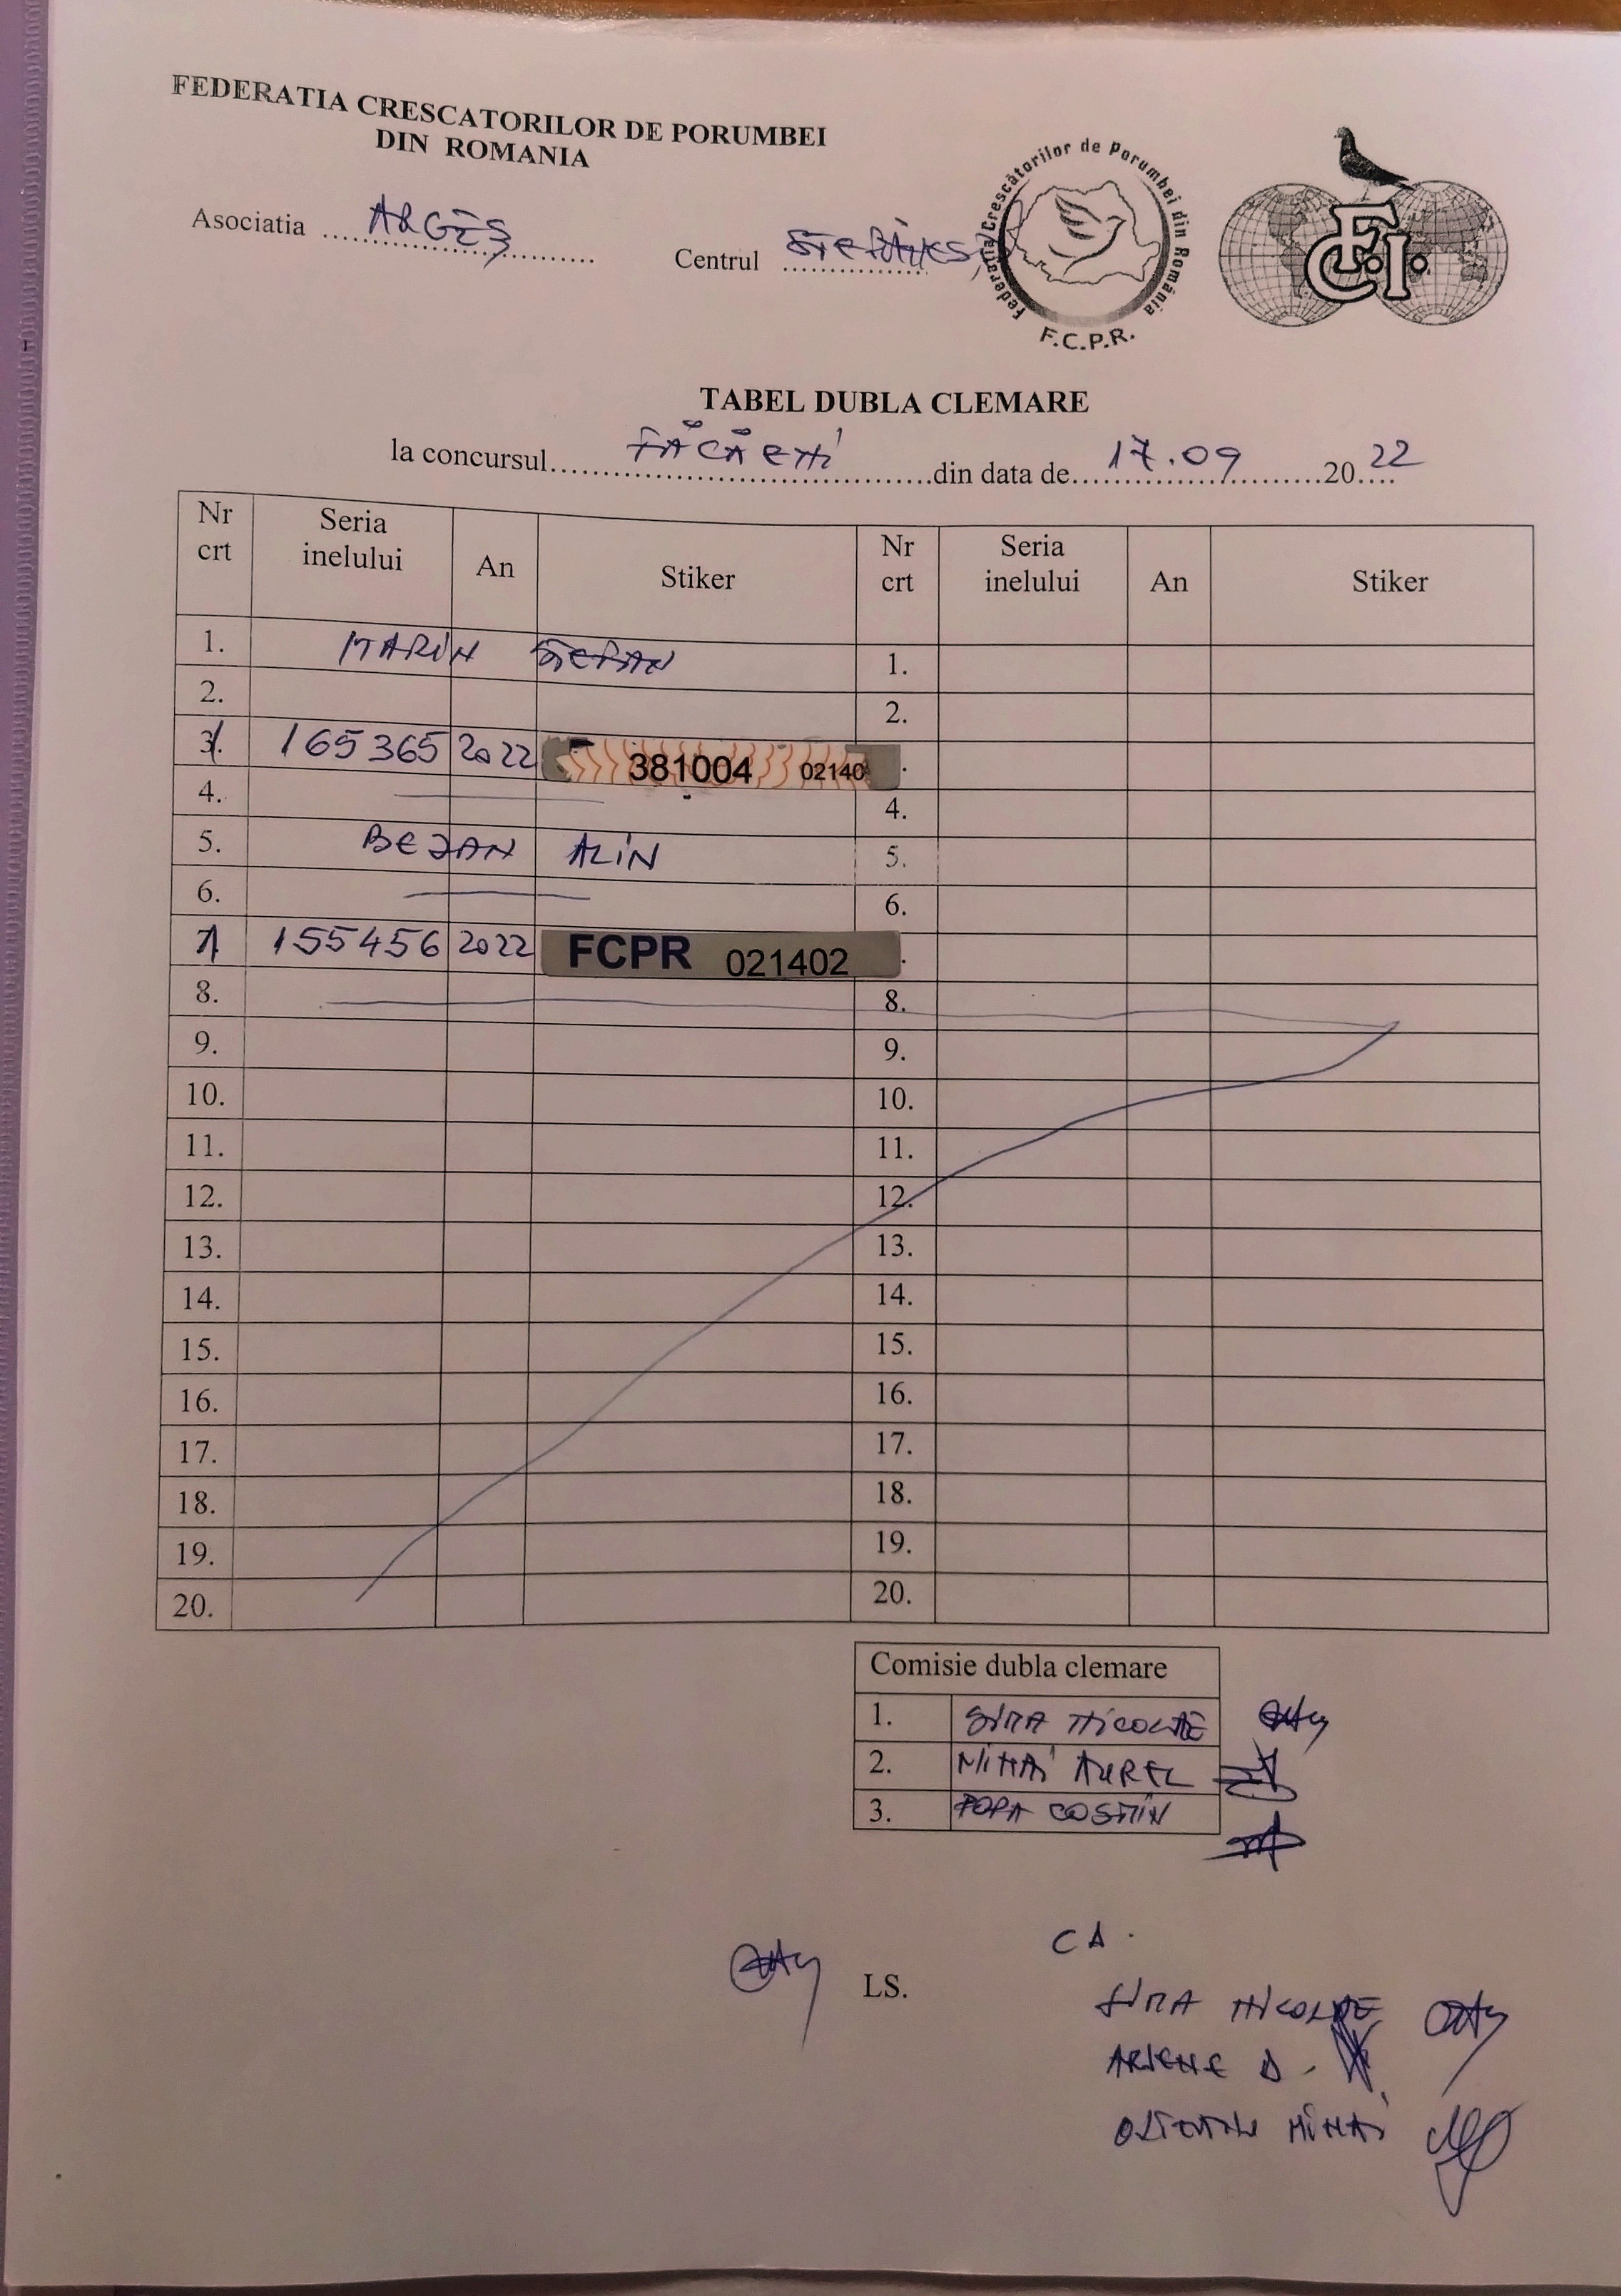 FEDERATIA CRESCATORILOR DE PORUMBEI
DIN ROMANIA
Asociatia ARGEȘ
Centrul
Federația Crescătorilor de Porumbei din România
F.C.P.R.
FCI
TABEL DUBLA CLEMARE
la concursul FĂCĂENI din data de 17.09 2022
Nr crt Seria inelului An Stiker Nr crt Seria inelului An Stiker
1. MARIN ȘTEFAN 1.
2. 2.
165365 2022 381004 02140
4. 4.
5. BEJAN ALIN 5.
6. 6.
1 155456 2022 FCPR 021402
8. 8.
9. 9.
10. 10.
11. 11.
12. 12.
13. 13.
14. 14.
15. 15.
16. 16.
17. 17.
18. 18.
19. 19.
20. 20.
Comisie dubla clemare
1. SIMA NICOLAE
2. MIHAI AUREL
3. POPA COSMIN
LS.
CA.
SIMA NICOLAE
ARSENE D.
MIHAI